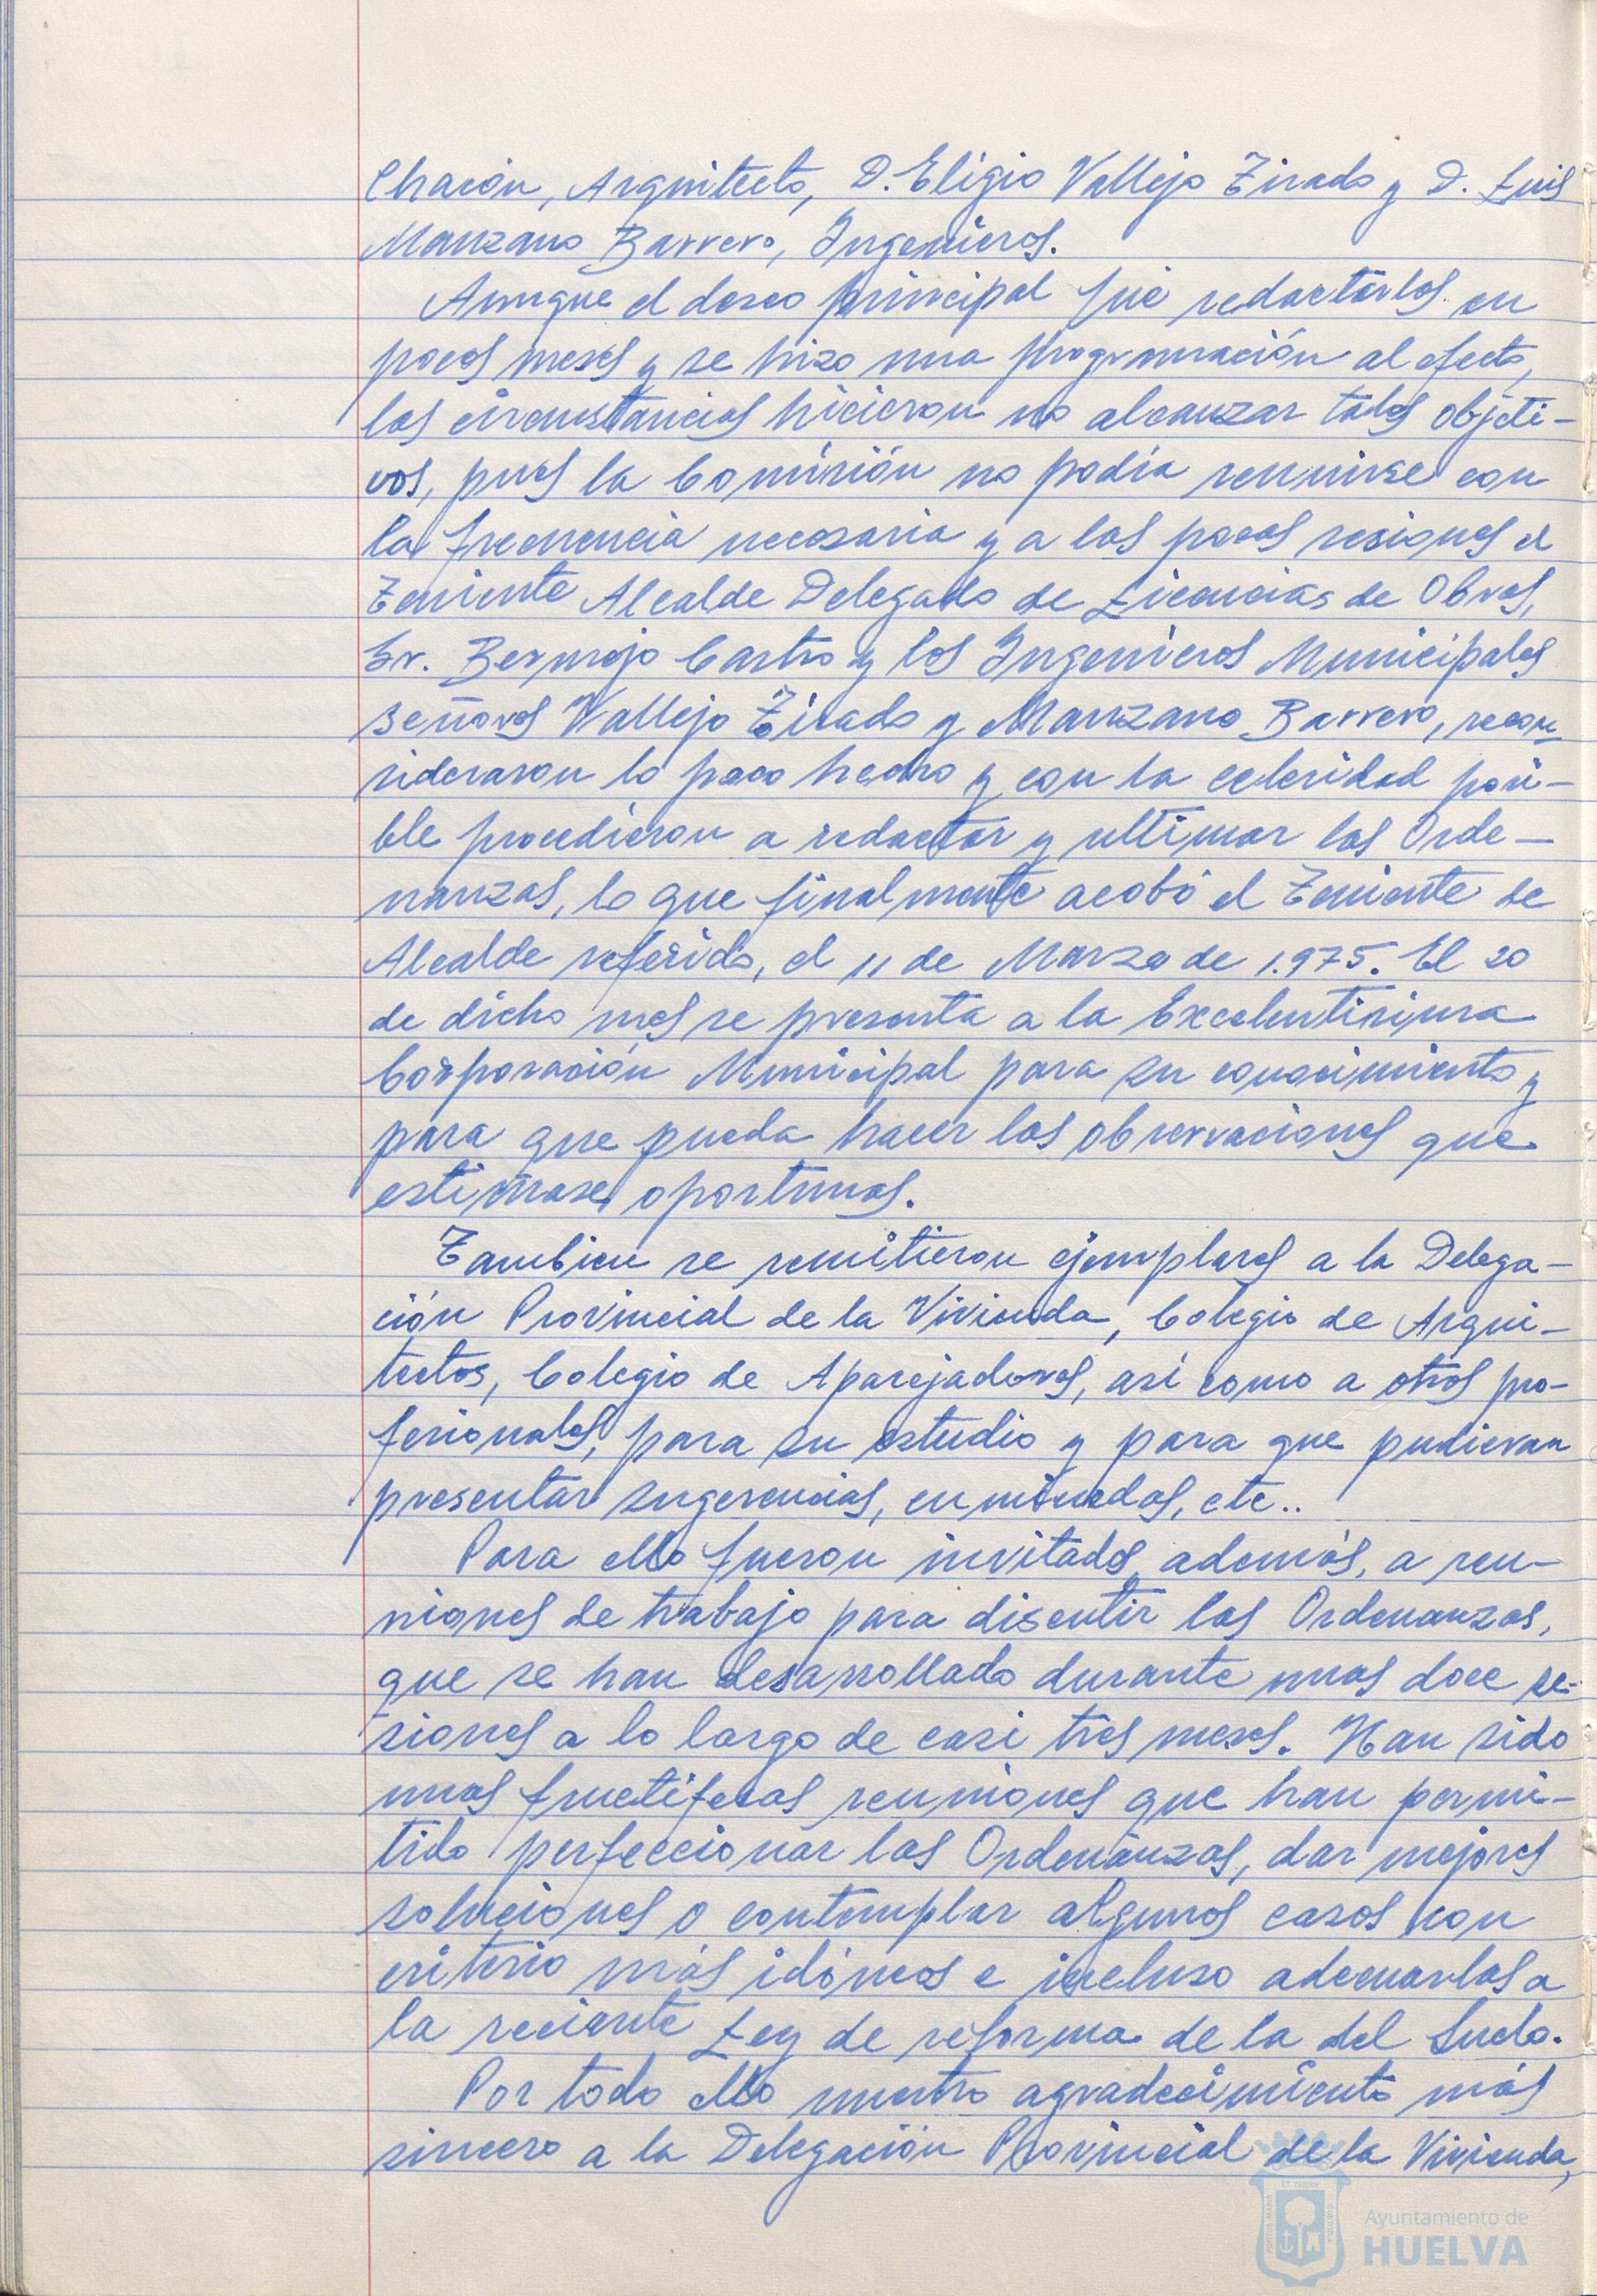 Chacón, Arquitecto, D. Eligio Vallejo Tirado y D. Luis
Manzano Barrero, Ingenieros.
Aunque el deseo principal fué redactarlas en
pocos meses y se hizo una programación al efecto,
las circunstancias hicieron no alcanzar tales objeti-
vos, pues la Comisión no podía reunirse con
la frecuencia necesaria y a las pocas sesiones el
Teniente Alcalde Delegado de Licencias de Obras,
Sr. Bermejo Castro y los Ingenieros Municipales
señores Vallejo Tirado y Manzano Barrero, recon
sideraron lo poco hecho y con la celeridad posi-
ble procedieron a redactar y ultimar las Orde-
nanzas, lo que finalmente acabó el Teniente de
Alcalde referido, el 11 de Marzo de 1.975. El 20
de dicho mes se presenta a la Excelentisima
Corporación Municipal para su conocimiento y
para que pueda hacer las observaciones que
estimase oportunas.
Tambien se remitieron ejemplares a la Delega-
ción Provincial de la Vivienda, Colegio de Arqui-
tectos, Colegio de Aparejadores, así como a otros pro-
fesionales, para su estudio y para que pudieran
presentar sugerencias, enmiendas, etc..
Para ello fueron invitados además, a reu-
niones de trabajo para discutir las Ordenanzas,
que se han desarrollado durante unas doce se-
siones a lo largo de casi tres meses. Han sido
unas fructiferas reuniones que han permi-
tido perfeccionar las Ordenanzas, dar mejores
soluciones o contemplar algunos casos con
criterio más idóneos e incluso adecuarlas a
la reciente Ley de reforma de la del Suelo.
Por todo ello nuestro agradecimiento más
sincero a la Delegación Provincial de la Vivienda,
Ayuntamiento de
HUELVA